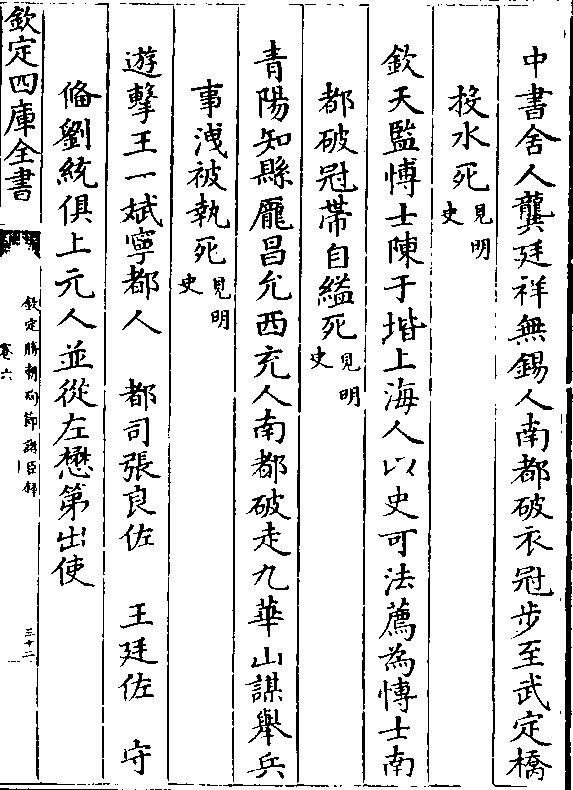 中書舍人龔廷祥無錫人南都破衣冠步至武定橋
投水死見明史
欽天監博士陳于堦上海人以史可法薦為博士南
都破冠帶自縊死見明史
青陽知縣龐昌允西充人南都破走九華山謀舉兵
事洩被執死見明史
遊擊王一斌寧都人 都司張良佐 王廷佐 守
備劉統俱上元人並從左懋第出使
欽定四庫全書
欽定勝朝殉節諸臣錄
卷六
三十二